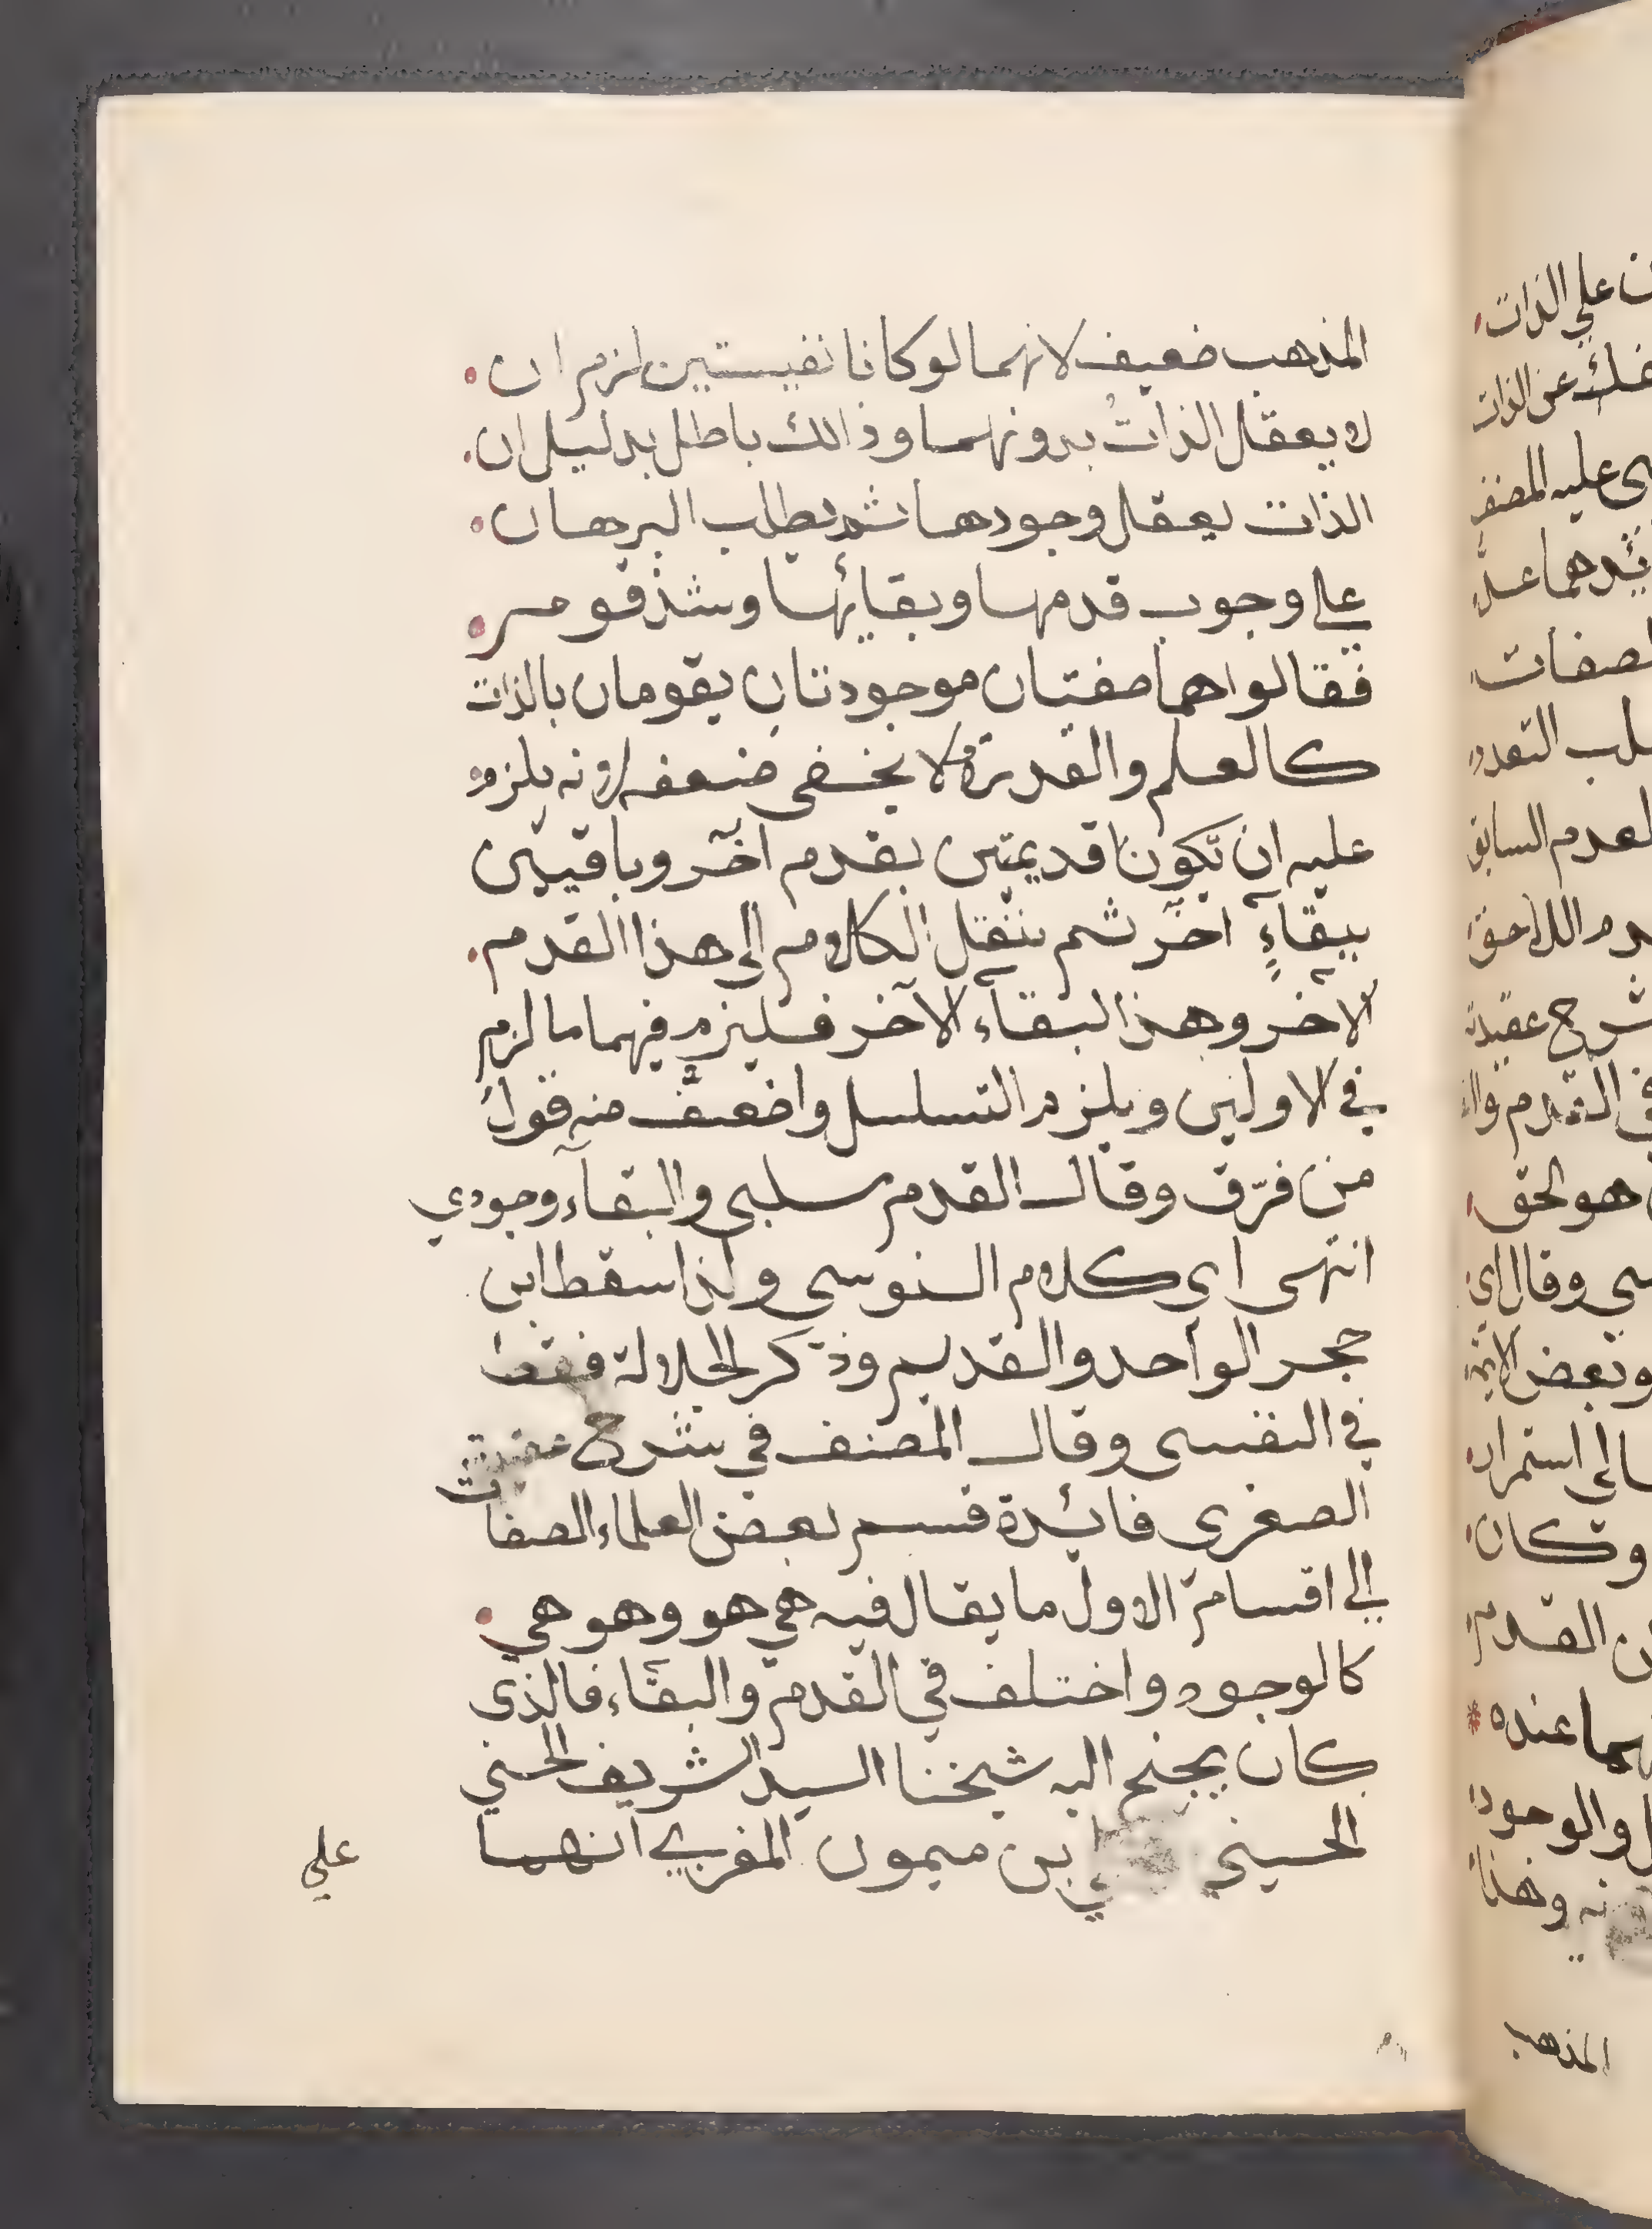 المذهب ضعيف لانهما لو كانا نفيستين لزم ان
لا يعقل الذاتُ بدونهما وذالك باطل بدليل ان
الذات يعقل وجودها ثم يطلب البرهان
علي وجوب قدمها وبقائها وشذ قوم
فقالوا هما صفتان موجودتان يقومان بالذات
كالعلم والقدرة ولا يخفى ضعفه لانه يلزم
عليه ان تكونا قديمتين بقدم آخر وباقيتين
ببقآءٍ آخر ثم ننقل الكلام الى هذا القدم
الآخر وهذا البقآء الآخر فليزم فيهما ما لزم
في الاولين ويلزم التسلسل واضعف منه قول
من فرّق وقال القدم سلبي والبقآء وجودي
انتهى اي كلام السنوسي ولذا سقط ابن
حجر الواحد والقديم وذكر الجلالة فقط
في النفسي وقال المصنف في شرح عقيدته
الصغرى فائدة قسم بعض العلماء الصفات
الي اقسام الاول ما يقال فيه هي هو وهو هي
كالوجود واختلف في القدم والبقاء فالذي
كان يجنح اليه شيخنا السيد الشريف الحسني
الحسيني بن ميمون المغربي انهما
علي
ن علي الذات
عن الذات
عليه المصنف
لصفات
العدم السابق
شرح عقيدته
هو الحق
سي وقال اي
وبعض الائمة
الي استمرار
وكان
ن القدم
عنده
والوجود
وهذا
المذهب